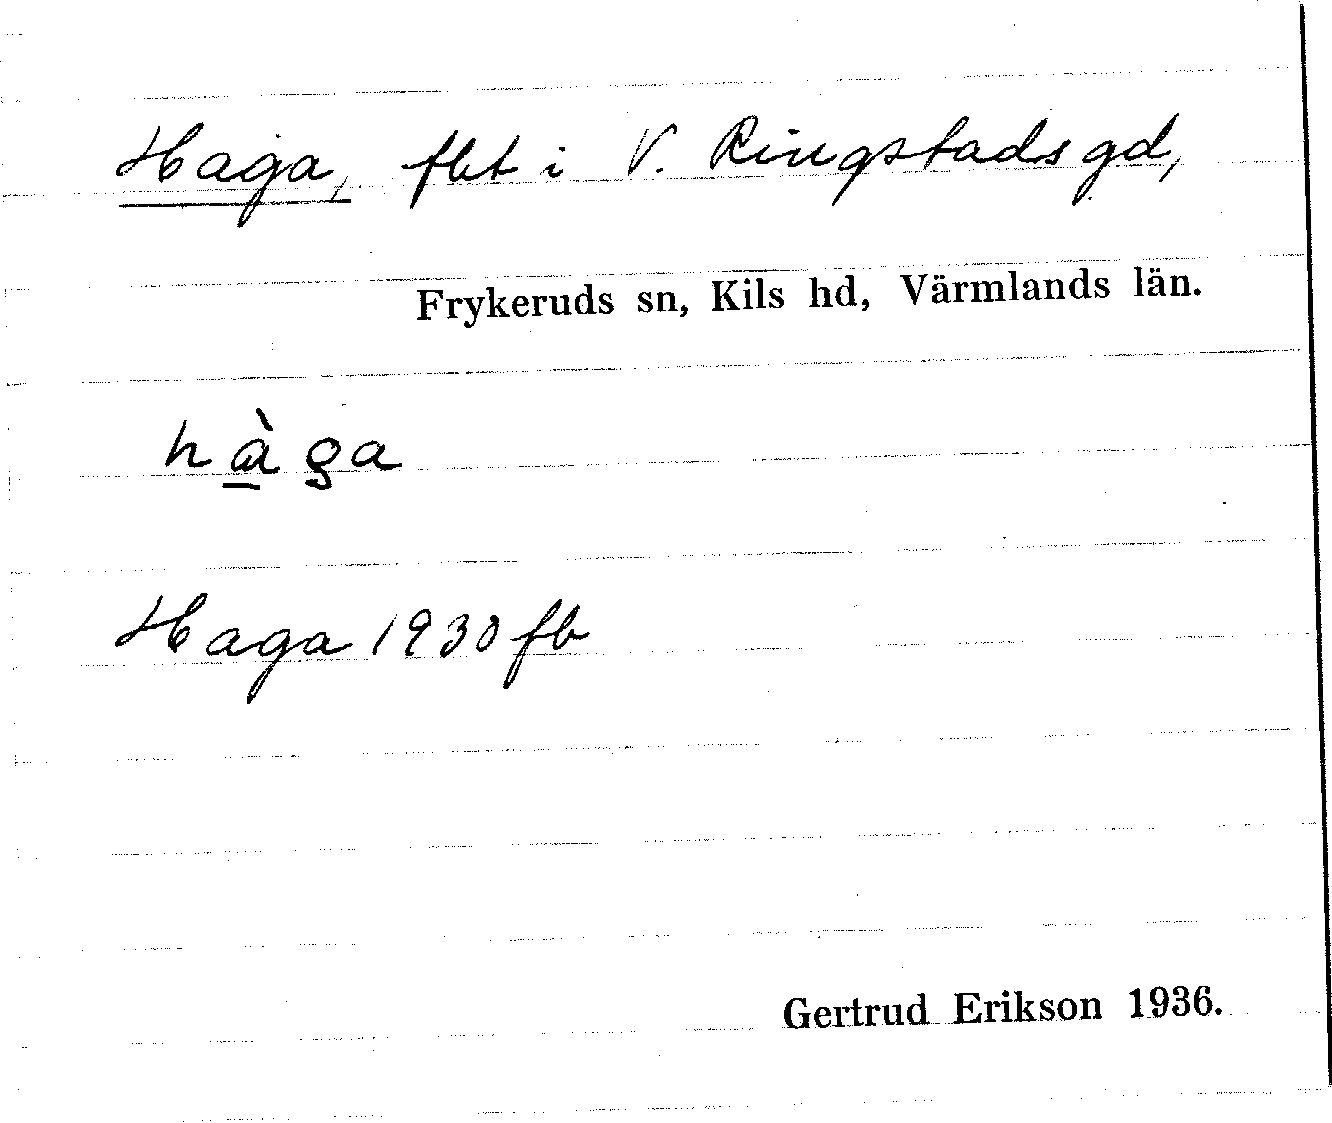 Haga, flt i V. Ringstadsgd,
Frykeruds sn, Kils hd, Värmlands län.
hàga
Haga 1930 fb
Gertrud Erikson 1936.